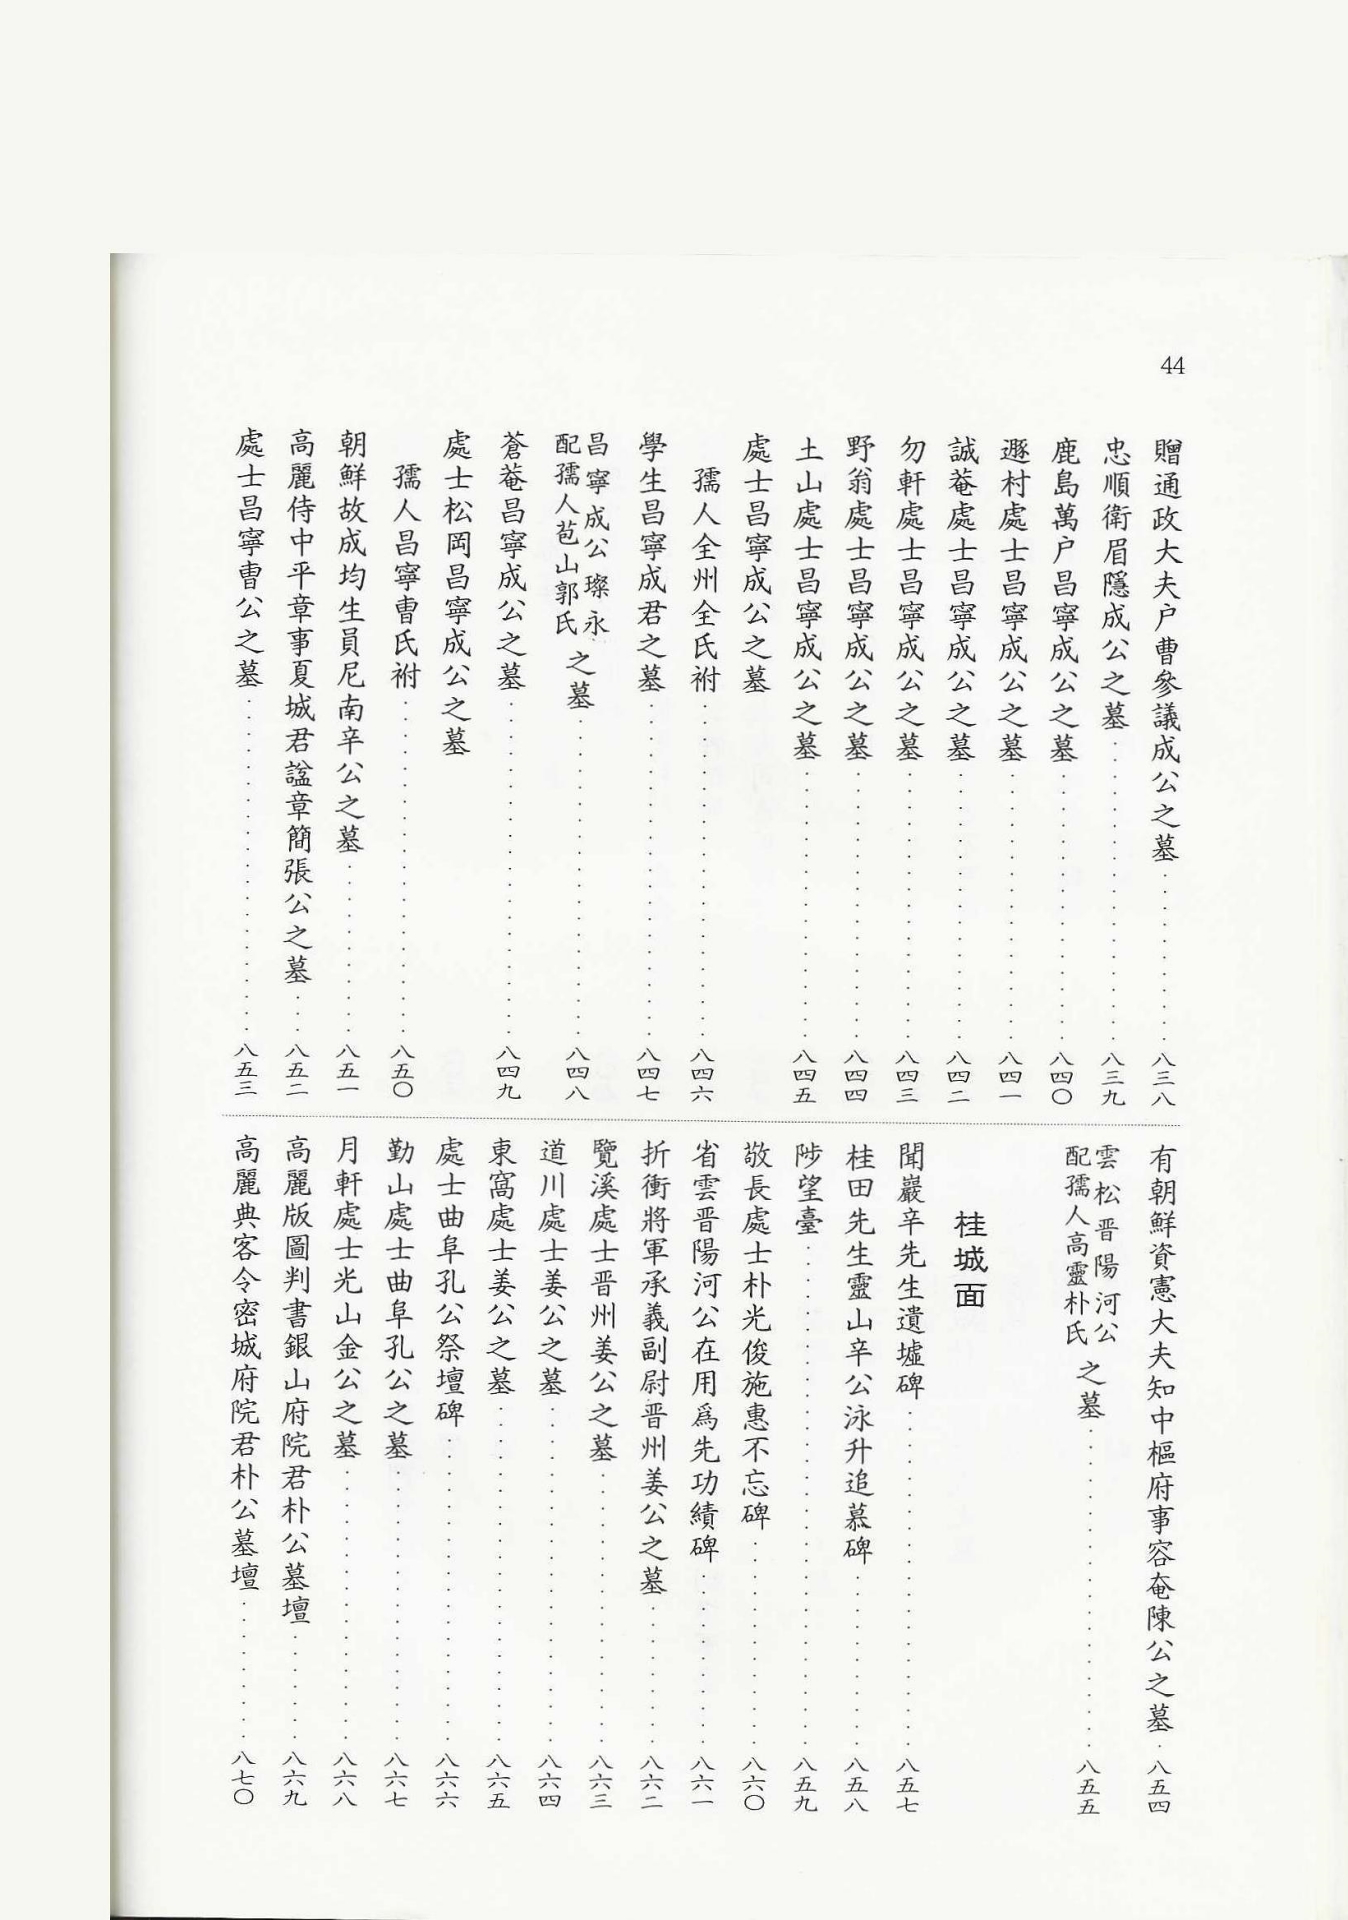 44
贈通政大夫户曹參議成公之墓 八三八
忠順衛眉隱成公之墓 八三九
鹿島萬户昌寧成公之墓 八四〇
遯村處士昌寧成公之墓 八四一
誠菴處士昌寧成公之墓 八四二
勿軒處士昌寧成公之墓 八四三
野翁處士昌寧成公之墓 八四四
土山處士昌寧成公之墓 八四五
處士昌寧成公之墓
孺人全州全氏祔 八四六
學生昌寧成君之墓 八四七
昌寧成公璨永
配孺人苞山郭氏
之墓 八四八
蒼菴昌寧成公之墓 八四九
處士松岡昌寧成公之墓
孺人昌寧曹氏祔 八五〇
朝鮮故成均生員尼南辛公之墓 八五一
高麗侍中平章事夏城君諡章簡張公之墓 八五二
處士昌寧曹公之墓 八五三
有朝鮮資憲大夫知中樞府事容奄陳公之墓 八五四
雲松晋陽河公
配孺人高靈朴氏
之墓 八五五
桂城面
聞巖辛先生遺墟碑 八五七
桂田先生靈山辛公泳升追慕碑 八五八
陟望臺 八五九
敬長處士朴光俊施惠不忘碑 八六〇
省雲晋陽河公在用爲先功績碑 八六一
折衝將軍承義副尉晋州姜公之墓 八六二
覽溪處士晋州姜公之墓 八六三
道川處士姜公之墓 八六四
東窩處士姜公之墓 八六五
處士曲阜孔公祭壇碑 八六六
勤山處士曲阜孔公之墓 八六七
月軒處士光山金公之墓 八六八
高麗版圖判書銀山府院君朴公墓壇 八六九
高麗典客令密城府院君朴公墓壇 八七〇